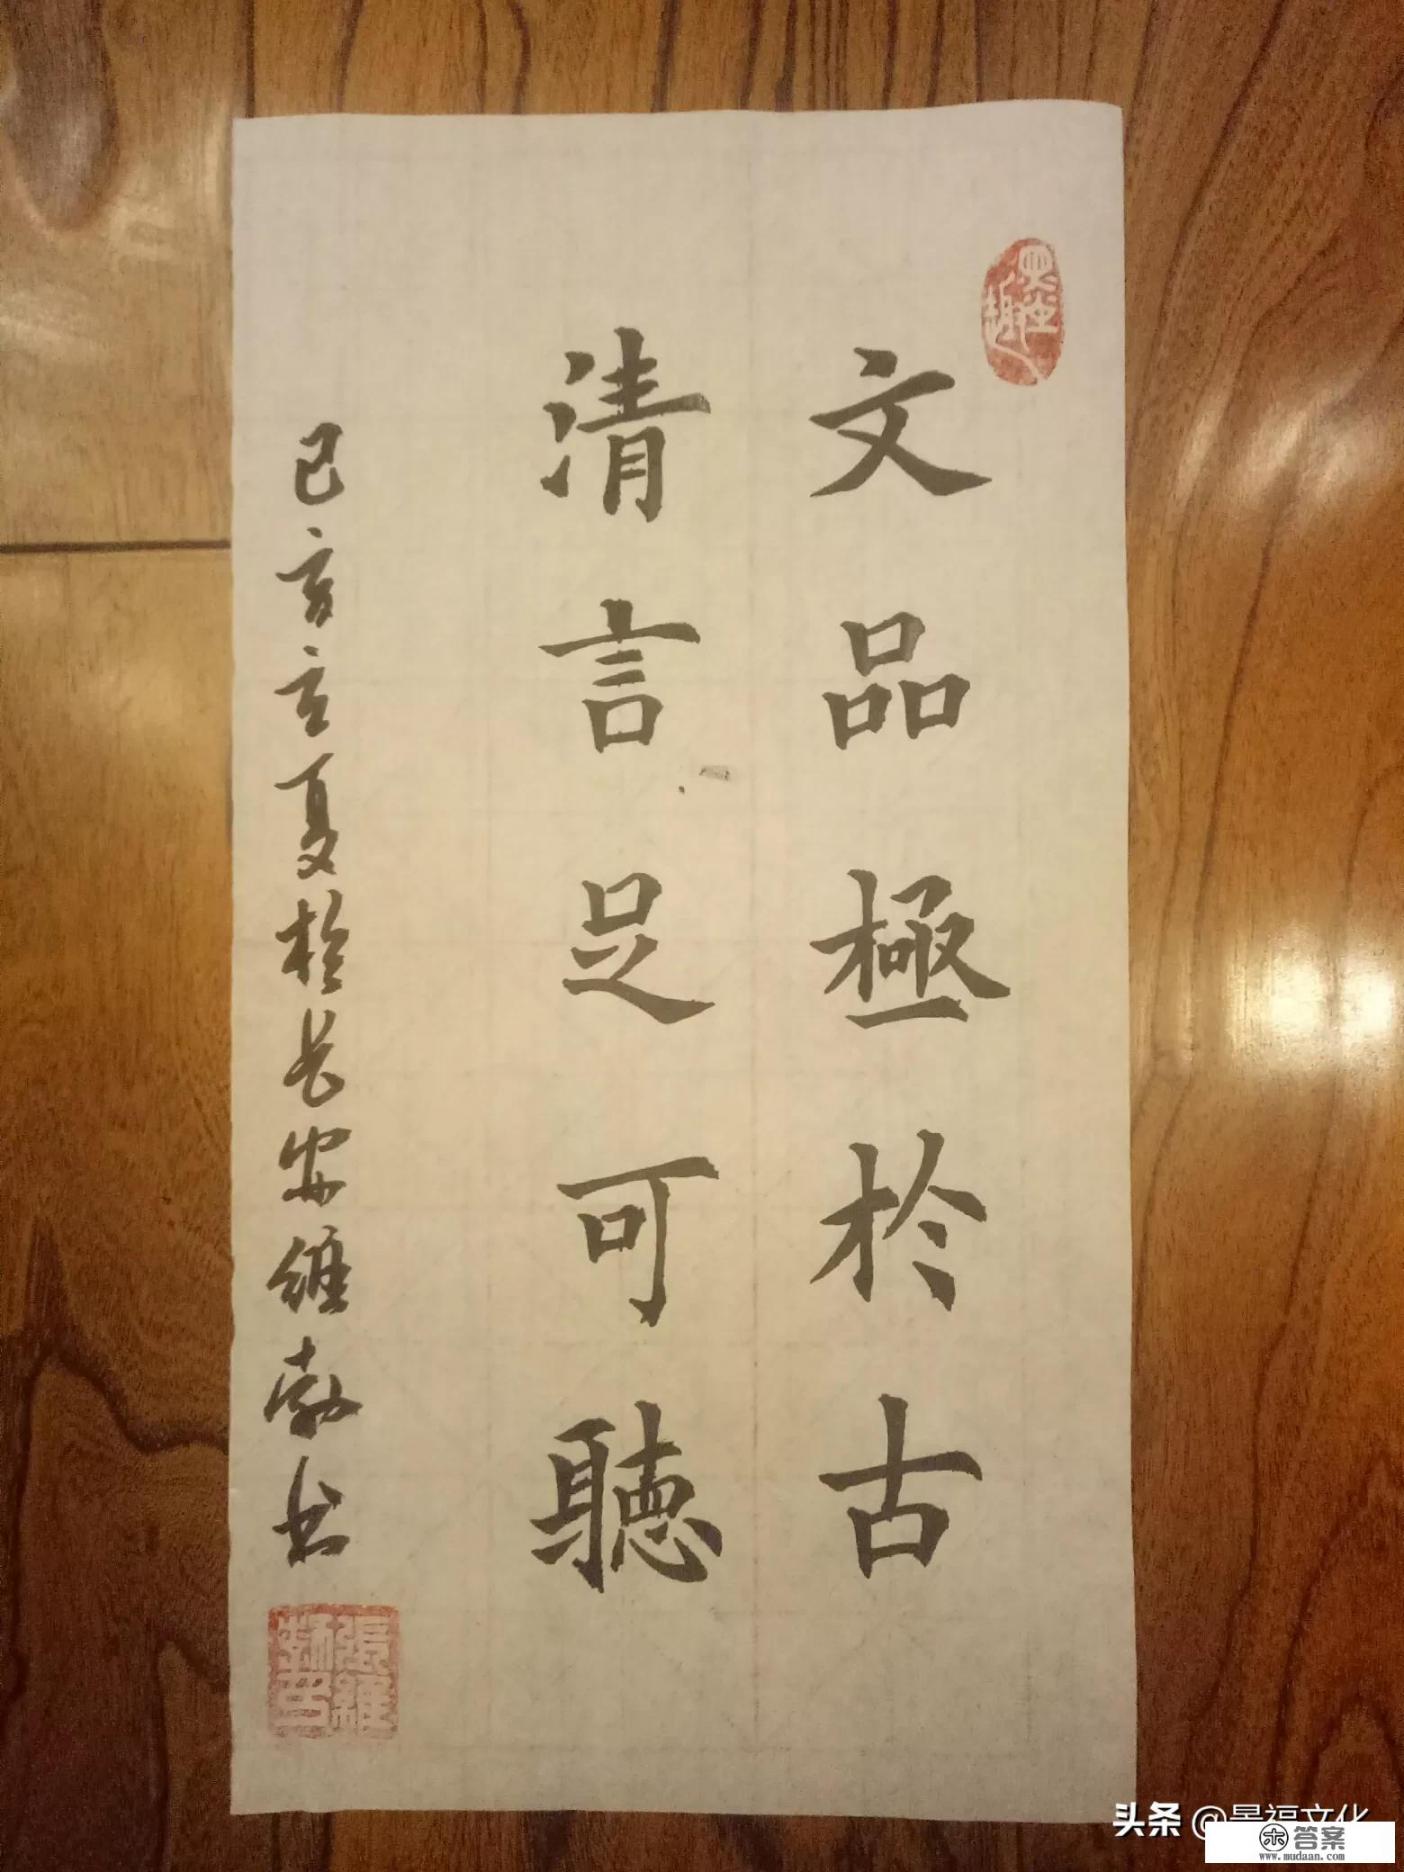 文品極於古
清言足可聽
己亥立夏於长安維勃书
墨趣
張維勃印
头条 @景福文化
答案
www.mudaan.com